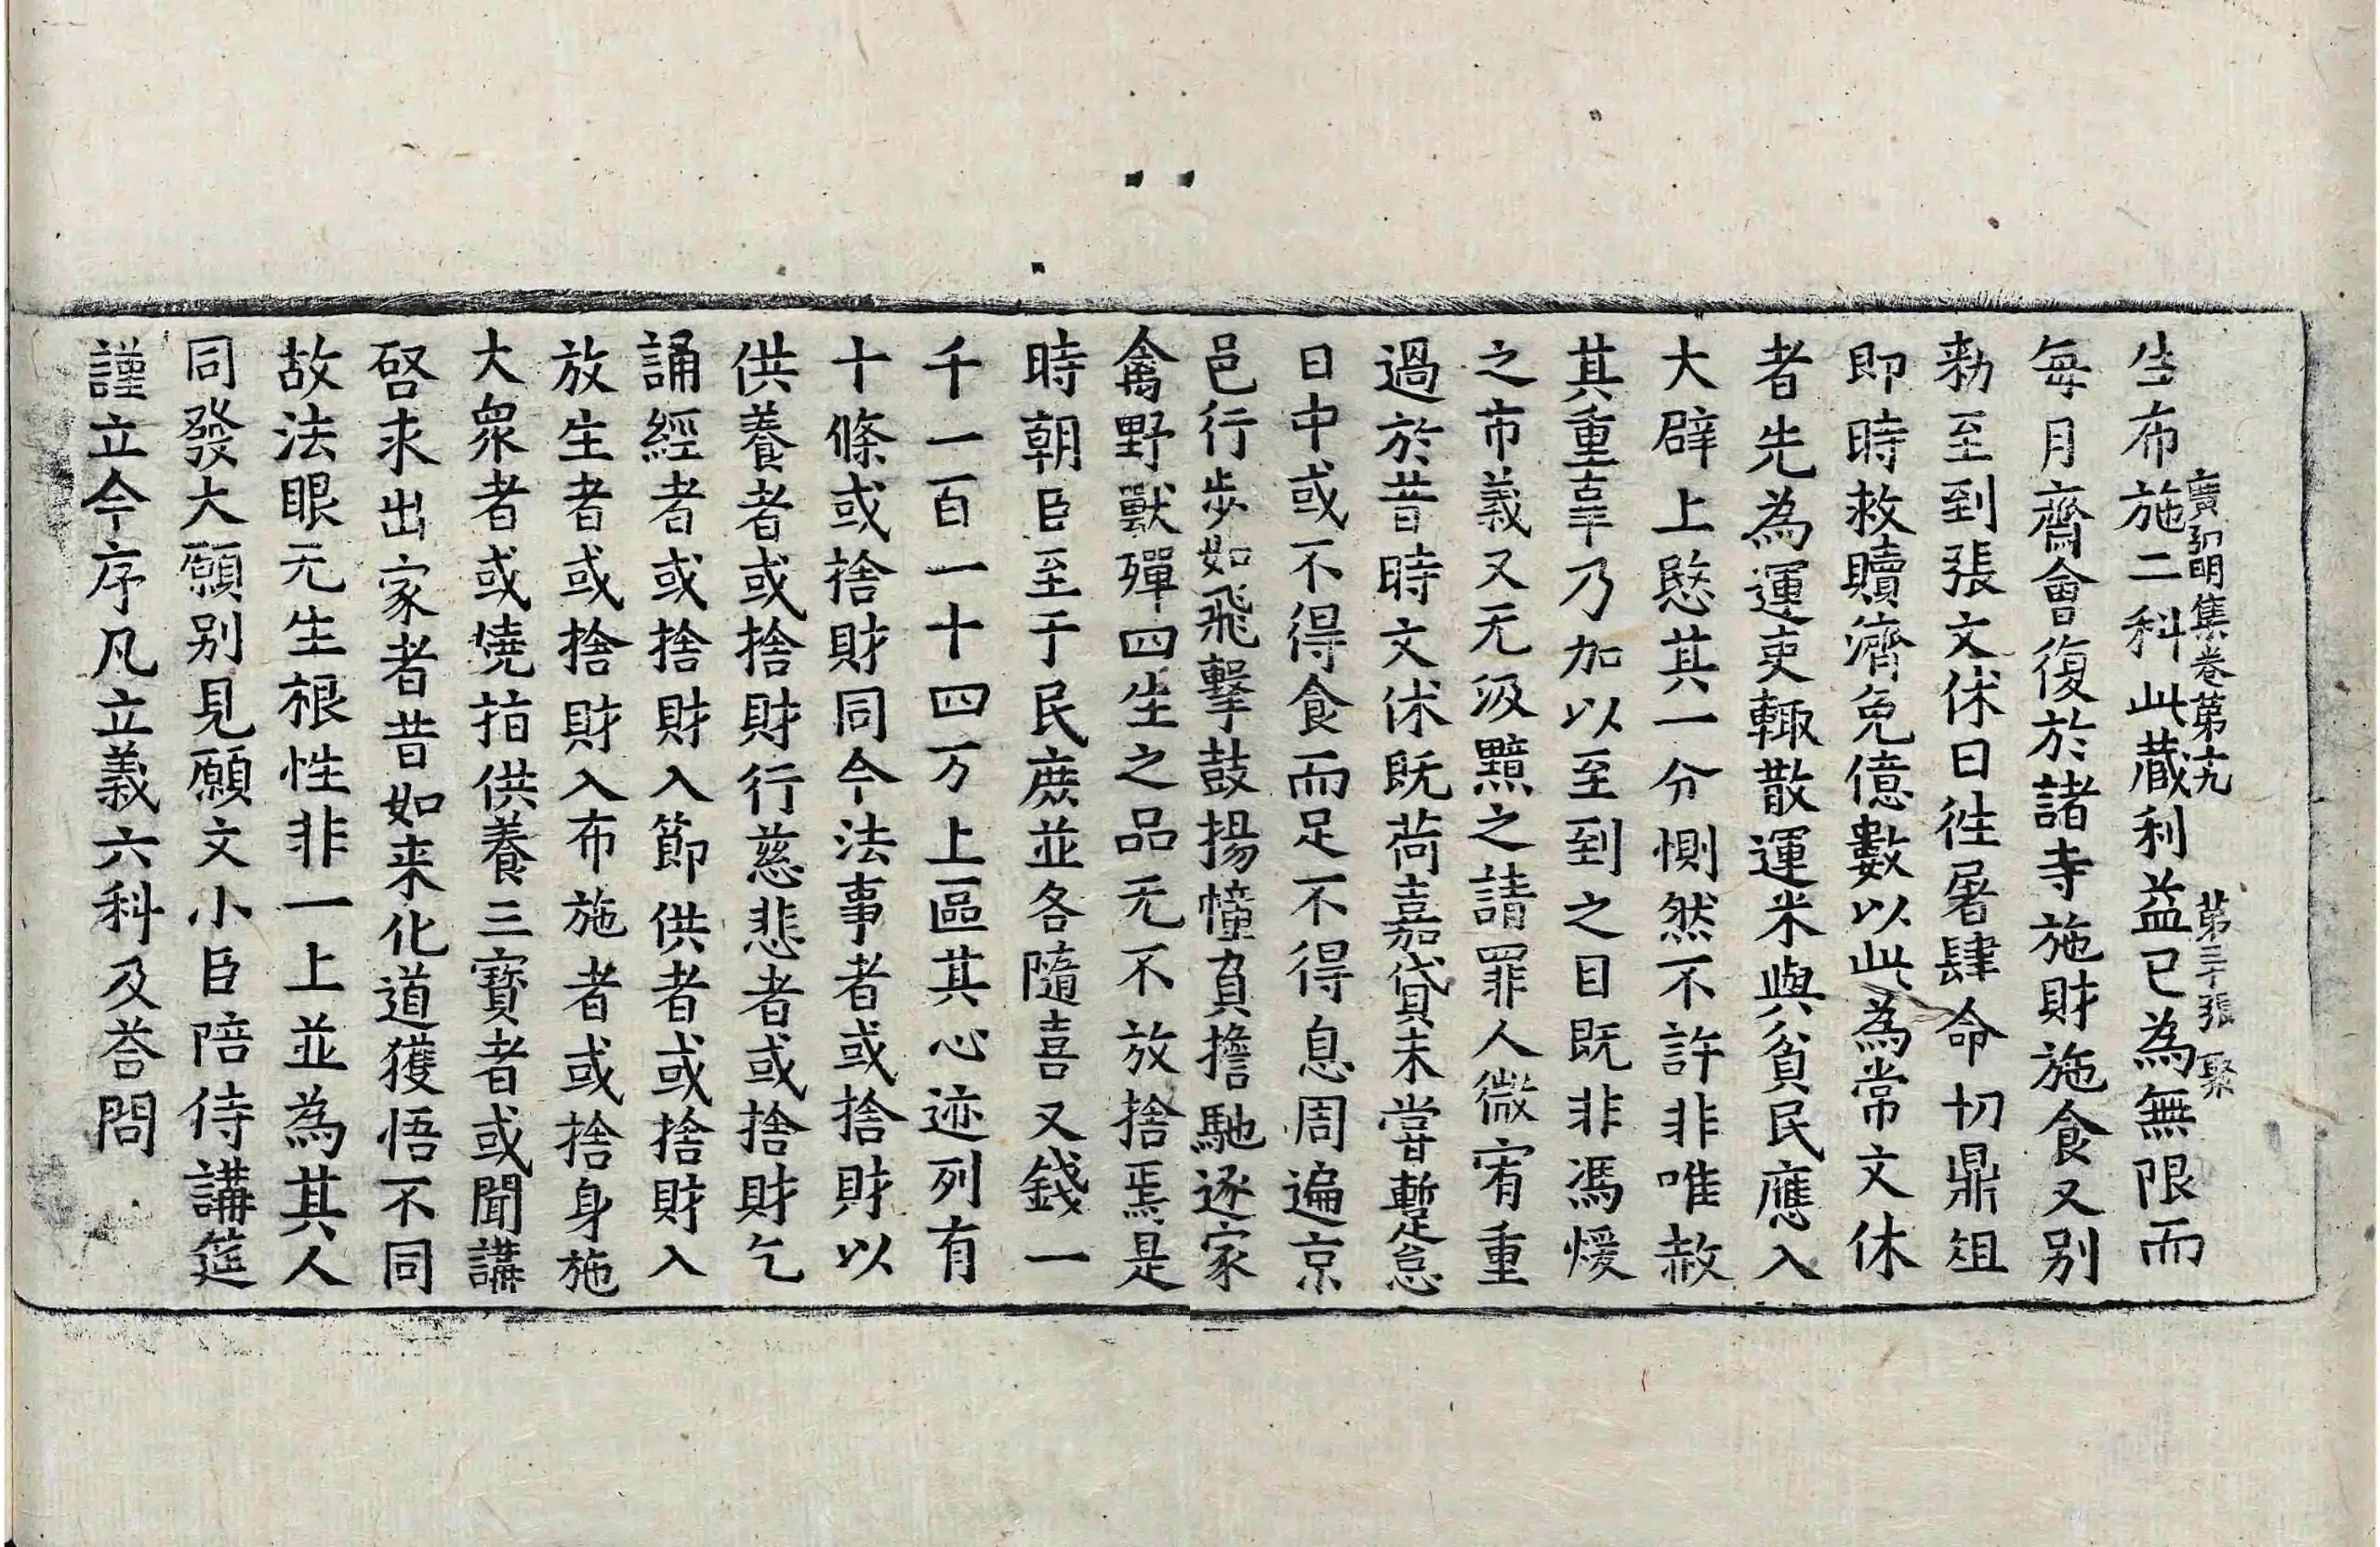 生布施二科此藏利益已為無限而
廣弘明集卷第十九 第三十張 聚
每月齋會復於諸寺施財施食又别
勑至到張文休日徃屠肆命切鼎俎
即時救贖濟免億數以此為常文休
者先為運吏輙散運米與貧民應入
大辟上愍其一分惻然不許非唯赦
其重辜乃加以至到之目既非馮煖
之市義又无汲黯之請罪人微宥重
過於昔時文休既荷嘉貸未嘗蹔怠
日中或不得食而足不得息周遍京
邑行步如飛擊鼓揚幢負擔馳逐家
禽野獸殫四生之品无不放捨焉是
時朝臣至于民庶並各隨喜又錢一
千一百一十四万上區其心迹列有
十條或捨財同今法事者或捨財以
供養者或捨財行慈悲者或捨財乞
誦經者或捨財入節供者或捨財入
放生者或捨財入布施者或捨身施
大衆者或燒指供養三寶者或聞講
啓求出家者昔如来化道獲悟不同
故法眼无生根性非一上並為其人
同發大願别見願文小臣陪侍講筵
謹立今序凡立義六科及荅問